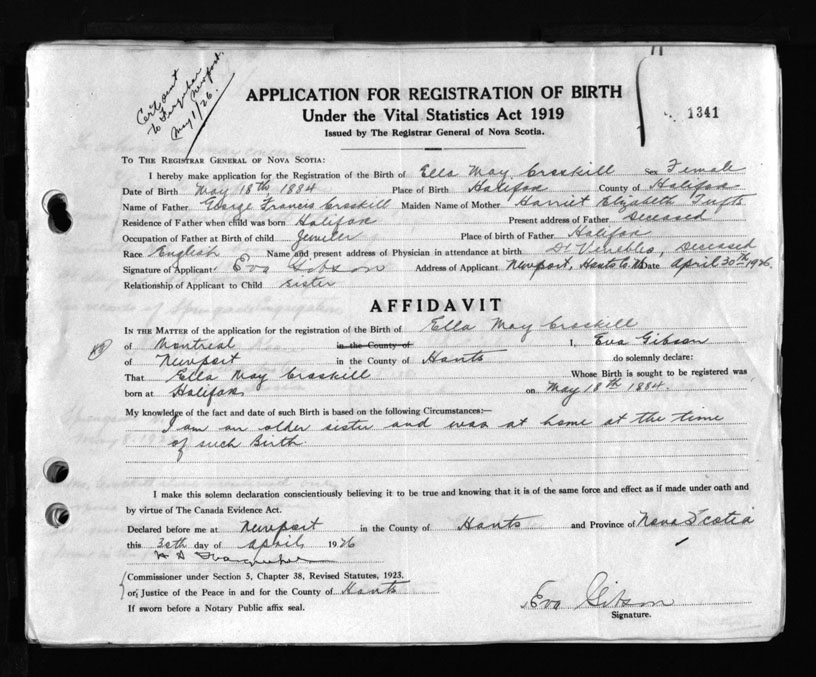 Cert sent
to Farquhar
Newport.
May 1/26.
1341
APPLICATION FOR REGISTRATION OF BIRTH
Under the Vital Statistics Act 1919
Issued by The Registrar General of Nova Scotia.
To The Registrar General of Nova Scotia:
I hereby make application for the Registration of the Birth of Ella May Croskill Sex Female
Date of Birth May 18th 1884 Place of Birth Halifax County of Halifax
Name of Father George Francis Croskill Maiden Name of Mother Harriet Elizabeth Tufts
Residence of Father when child was born Halifax Present address of Father Deceased
Occupation of Father at Birth of child Jeweler Place of birth of Father Halifax
Race English Name and present address of Physician in attendance at birth Dr Venebles, Deceased
Signature of Applicant Eva Gibson Address of Applicant Newport, Hants Co Date April 30th 1926.
Relationship of Applicant to Child sister
AFFIDAVIT
In the Matter of the application for the registration of the Birth of Ella May Croskill
of Montreal in the County of I, Eva Gibson
of Newport in the County of Hants do solemnly declare:
That Ella May Croskill Whose Birth is sought to be registered was
born at Halifax on May 18th 1884.
My knowledge of the fact and date of such Birth is based on the following Circumstances:—
I am an older sister and was at home at the time
of such Birth
I make this solemn declaration conscientiously believing it to be true and knowing that it is of the same force and effect as if made under oath and
by virtue of The Canada Evidence Act.
Declared before me at Newport in the County of Hants and Province of Nova Scotia
this 30th day of April 1926
Commissioner under Section 5, Chapter 38, Revised Statutes, 1923.
or, Justice of the Peace in and for the County of Hants
If sworn before a Notary Public affix seal.
Eva Gibson
Signature.